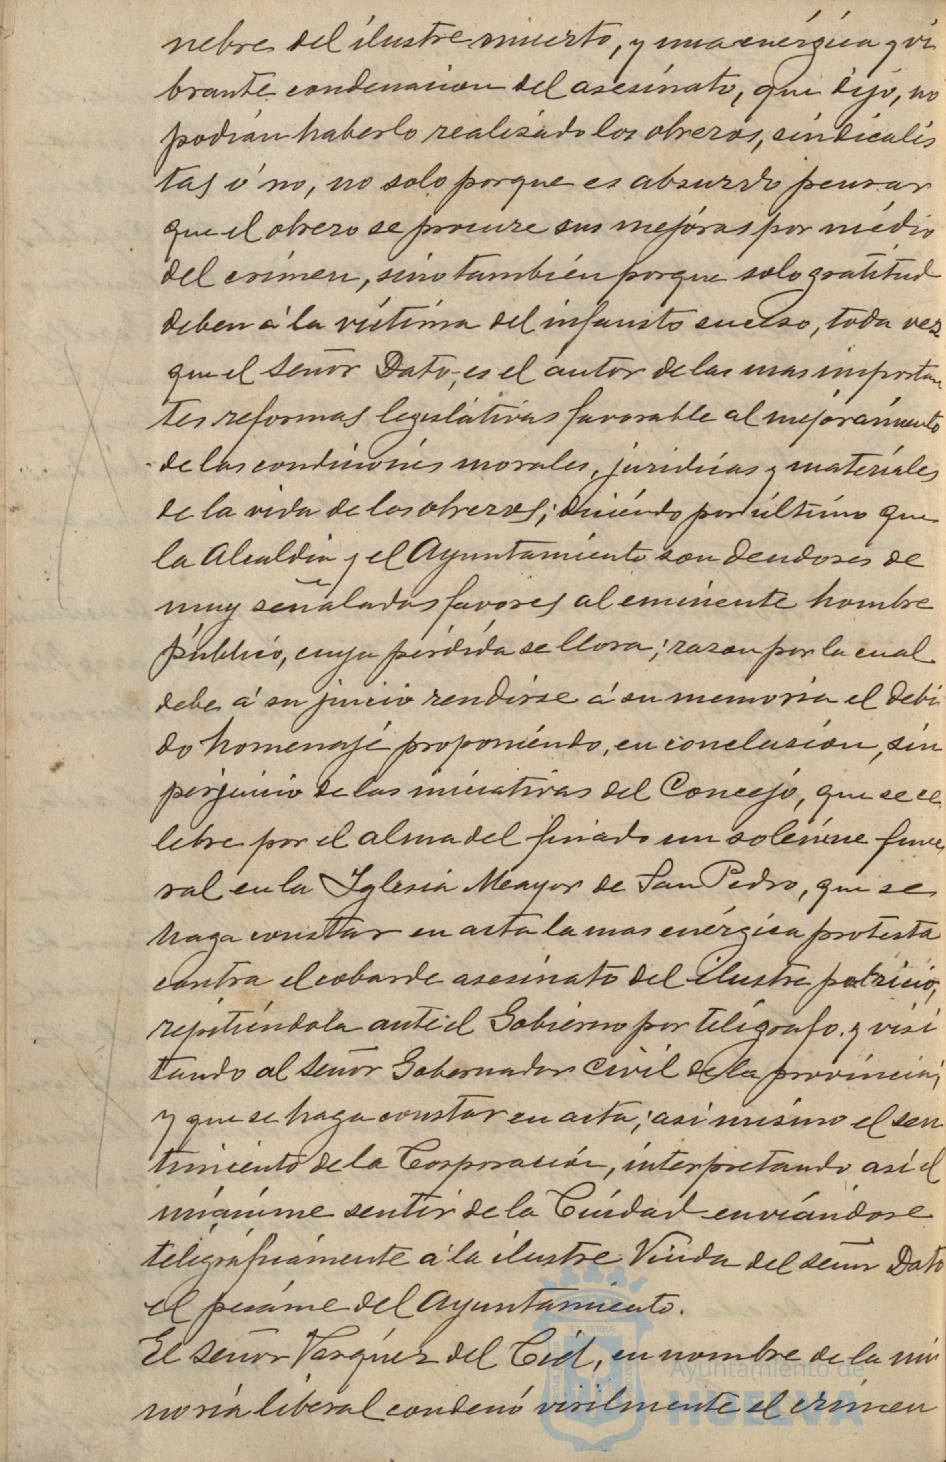 nebre del ilustre muerto, y una enérgica y vi
brante condenacion del asesinato, que dijo, no
podian haberlo realizado los obreros, sindicalis
tas ó no, no solo porque es absurdo pensar
que el obrero se procure sus mejoras por medio
del crimen, sino también porque solo gratitud
deben á la victima del infausto suceso, toda vez
que el señor Dato, es el autor de las mas importan
tes reformas legislativas favorable al mejoramiento
de las condiciones morales, juridicas y materiales
de la vida de los obreros; diciéndo por último que
la Alcaldia y el Ayuntamiento son deudores de
muy señalados favores al eminente hombre
público, cuya pérdida se llora; razon por la cual
debe á su juicio rendirse á su memoria el debi
do homenaje proponiendo, en conclusión, sin
perjuicio de las iniciativas del Concejo, que se ce
lebre por el alma del finado un solemne fune
ral en la Iglesia Meayor de San Pedro, que se
haga constar en acta la mas enérgica protesta
contra el cobarde asesinato del ilustre patricio,
repitiéndola ante el Gobierno por telégrafo y visi
tando al señor Gobernador civil de la provincia;
y que se haga constar en acta; asi mismo el sen
timiento de la Corporación, interpretando así el
unánime sentir de la Ciudad enviándose
telegráficamente á la ilustre Viuda del señor Dato
el pesáme del Ayuntamiento.
El señor Vazquez del Cid, en nombre de la mi
noria liberal condenó virilmente el crimen
Ayuntamiento de
HUELVA